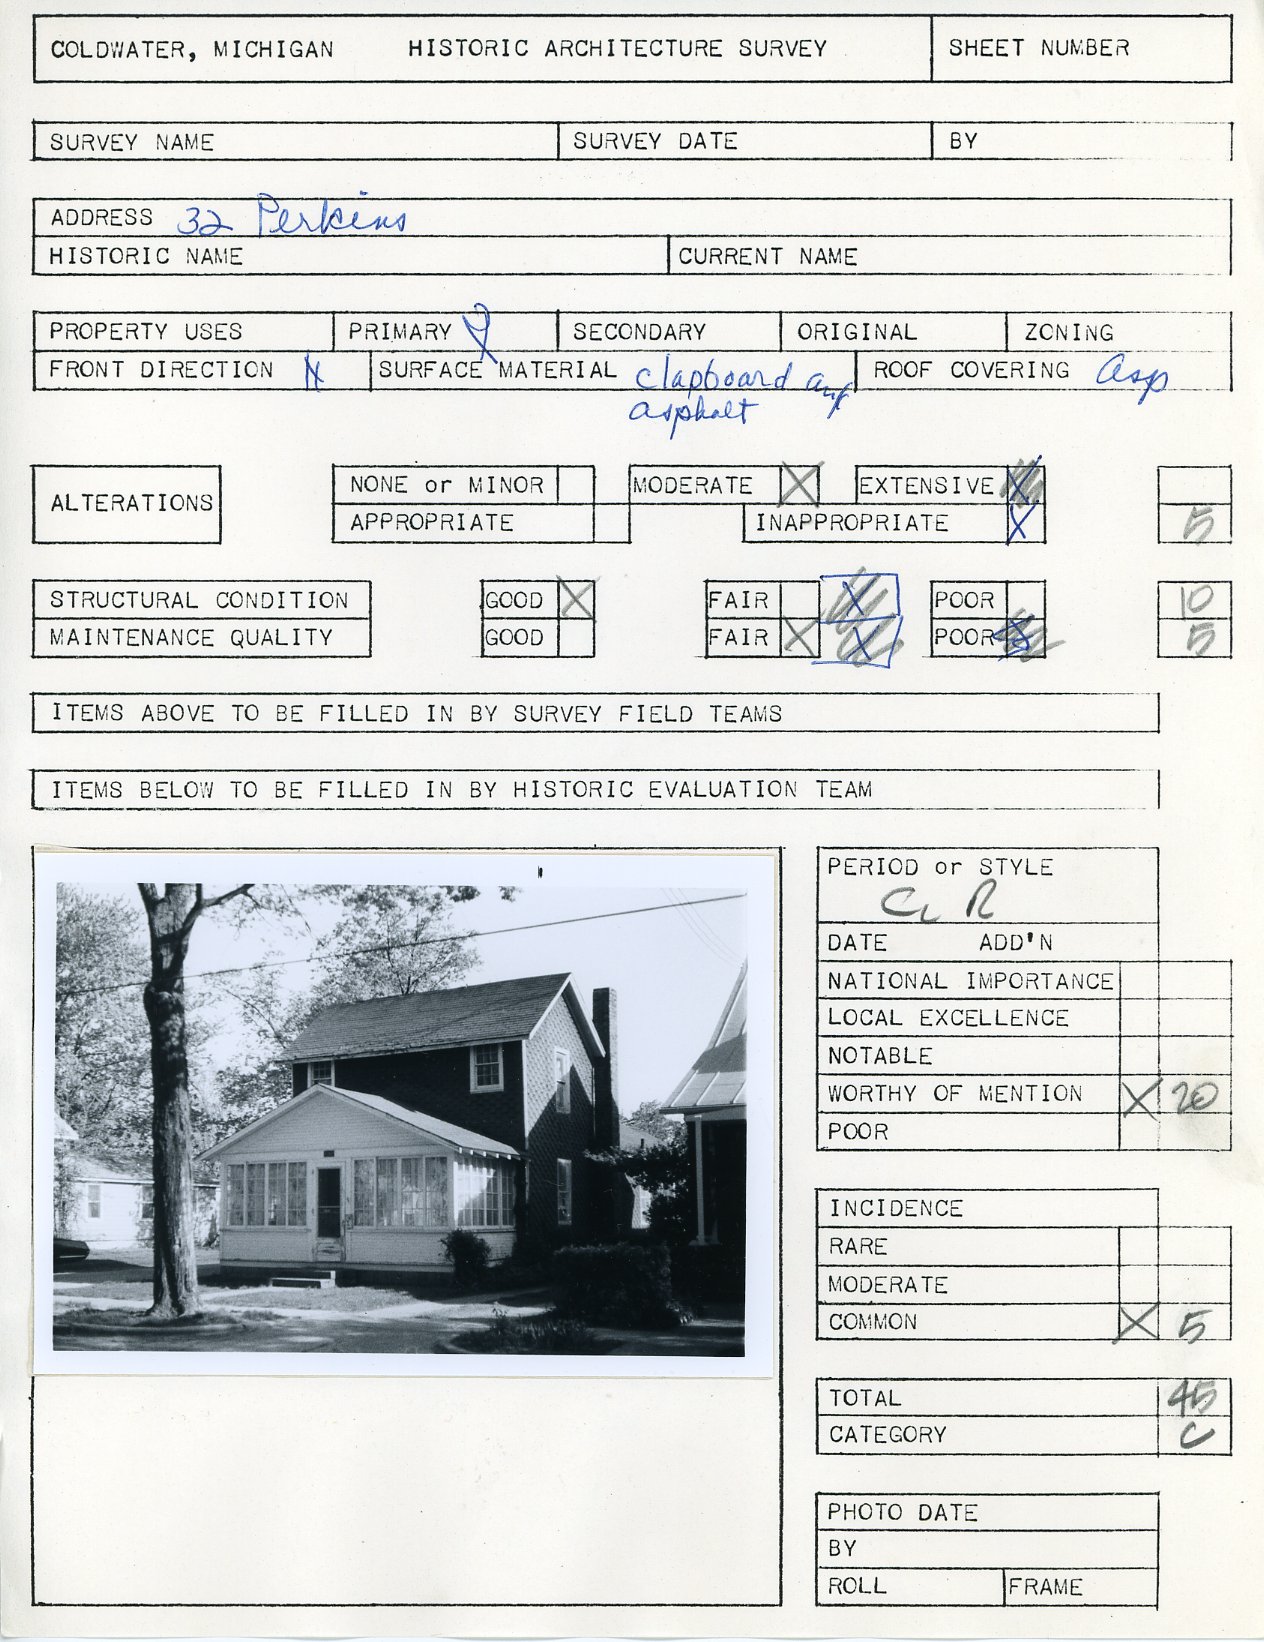 COLDWATER, MICHIGAN HISTORIC ARCHITECTURE SURVEY SHEET NUMBER
SURVEY NAME SURVEY DATE BY
ADDRESS 32 Perkins
HISTORIC NAME CURRENT NAME
PROPERTY USES PRIMARY SECONDARY ORIGINAL ZONING
FRONT DIRECTION N SURFACE MATERIAL clapboard and ROOF COVERING Asp
asphalt
ALTERATIONS NONE or MINOR MODERATE X EXTENSIVE X
APPROPRIATE INAPPROPRIATE X 5
STRUCTURAL CONDITION GOOD X FAIR X POOR 10
MAINTENANCE QUALITY GOOD FAIR X X POOR X 5
ITEMS ABOVE TO BE FILLED IN BY SURVEY FIELD TEAMS
ITEMS BELOW TO BE FILLED IN BY HISTORIC EVALUATION TEAM
PERIOD or STYLE
DATE ADD'N
NATIONAL IMPORTANCE
LOCAL EXCELLENCE
NOTABLE
WORTHY OF MENTION X 20
POOR
INCIDENCE
RARE
MODERATE
COMMON X 5
TOTAL 45
CATEGORY C
PHOTO DATE
BY
ROLL FRAME